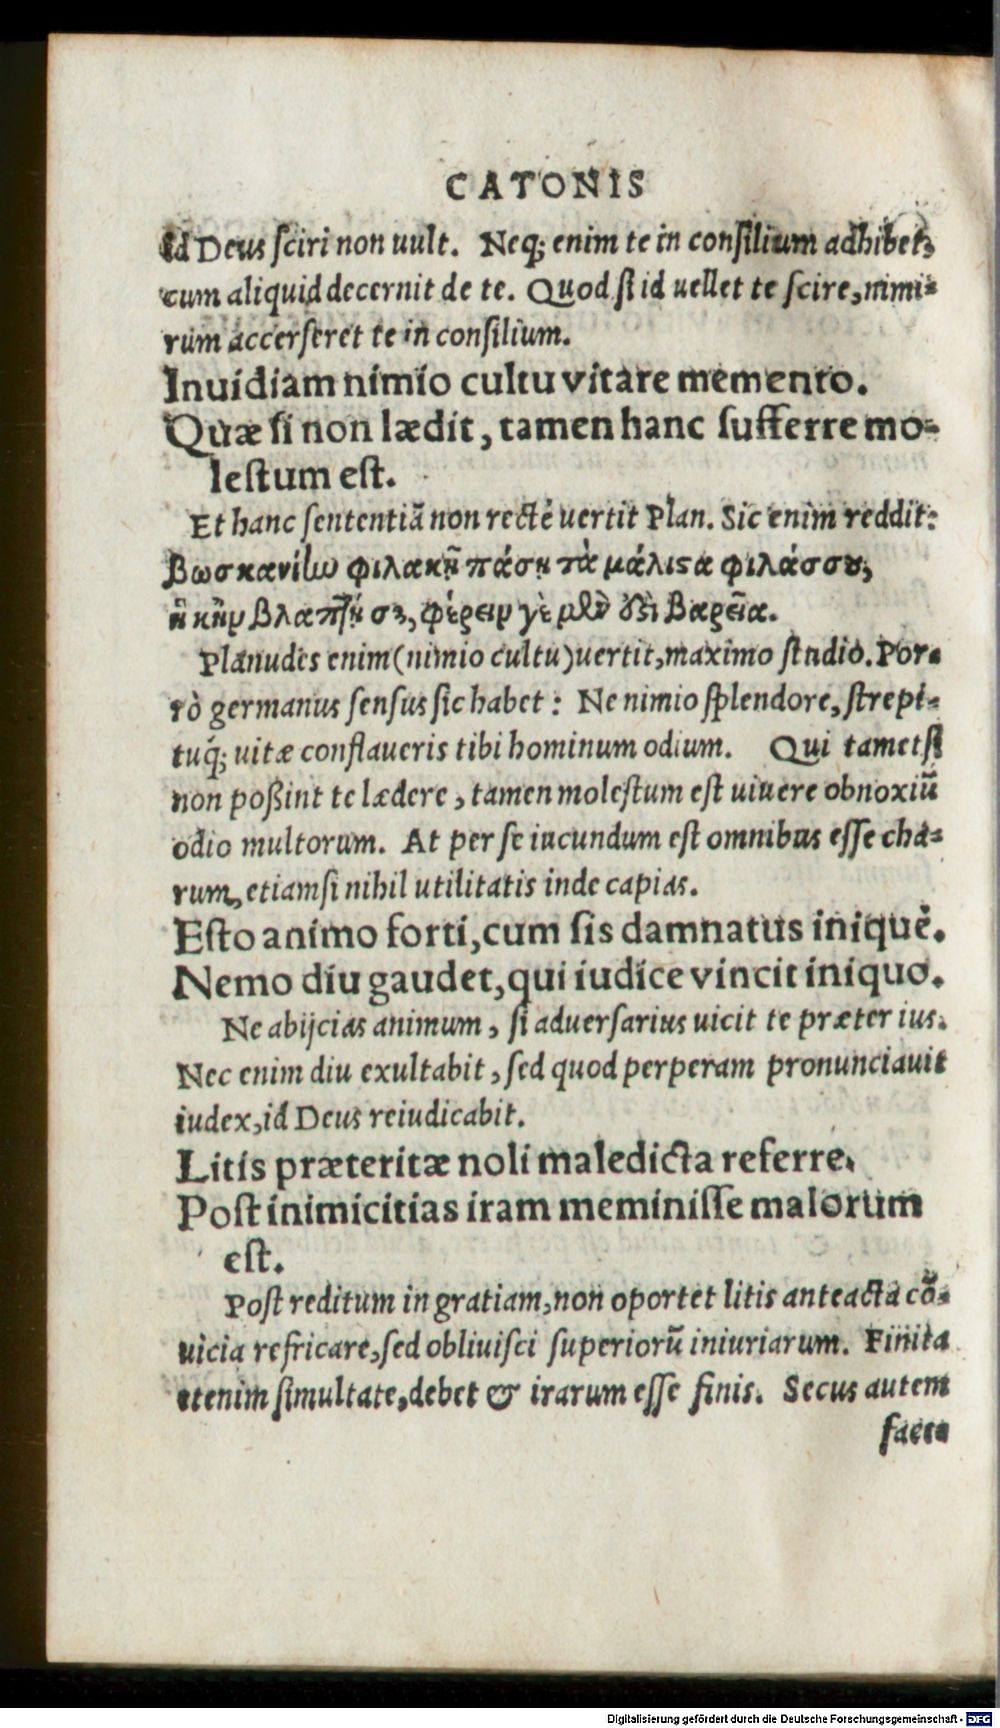 CATONIS
id Deus sciri non uult. Neq; enim te in consilium adhibet,
cum aliquid decernit de te. Quod si id uellet te scire, nimi-
rum accerseret te in consilium.
Inuidiam nimio cultu vitare memento.
Quæ si non lædit, tamen hanc sufferre mo-
lestum est.
Et hanc sententiā non rectè uertit Plan. Sic enim reddit:
βωσκανίην φιλακῇ πάσῃ τὰ μάλιστα φιλάσσου,
ἢ κἢν βλαπτῄ σε, φέρειν γὲ μὲν ἐστι βαρεῖα.
Planudes enim (nimio cultu) uertit, maximo studio. Por-
rò germanus sensus sic habet: Ne nimio splendore, strepi-
tuq́; uitæ conflaueris tibi hominum odium. Qui tametsi
non poßint te lædere, tamen molestum est uiuere obnoxiū
odio multorum. At per se iucundum est omnibus esse cha-
rum, etiamsi nihil utilitatis inde capias.
Esto animo forti, cum sis damnatus iniquè.
Nemo diu gaudet, qui iudice vincit iniquo.
Ne abijcias animum, si aduersarius uicit te præter ius.
Nec enim diu exultabit, sed quod perperam pronunciauit
iudex, id Deus reiudicabit.
Litis præteritæ noli maledicta referre.
Post inimicitias iram meminisse malorum
est.
Post reditum in gratiam, non oportet litis anteacta cō-
uicia refricare, sed obliuisci superiorū iniuriarum. Finita
etenim simultate, debet & irarum esse finis. Secus autem
faci-
Digitalisierung gefördert durch die Deutsche Forschungsgemeinschaft - DFG